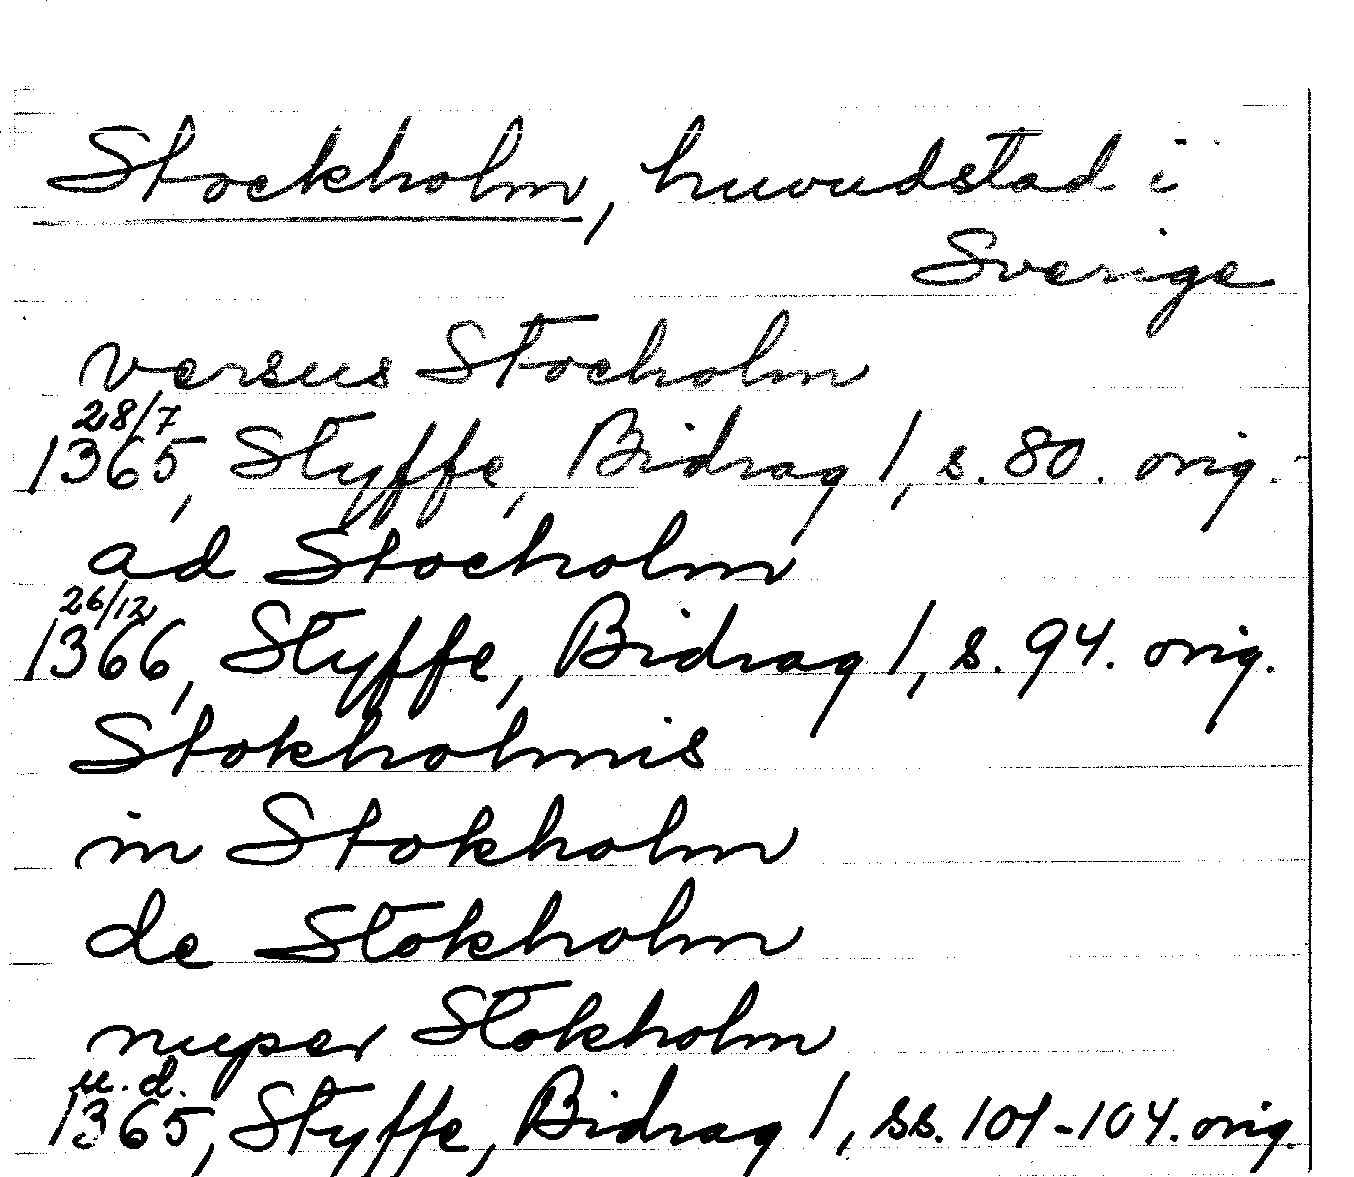 Stockholm, huvudstad i
Sverige
versus Stocholm
28/7
1365, Styffe, Bidrag 1, s. 80. orig.
ad Stocholm
26/12
1366, Styffe, Bidrag 1, s. 94. orig.
Stokholmis
in Stokholm
de Stokholm
nuper Stokholm
u. d.
1365, Styffe, Bidrag 1, ss. 101-104. orig.